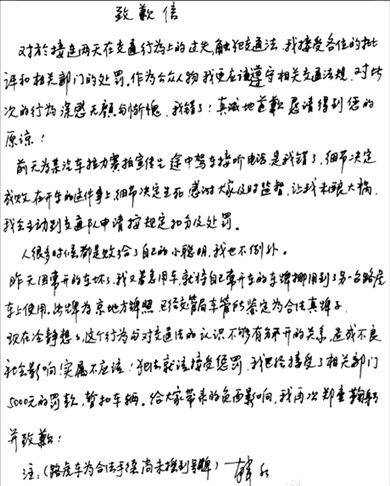 致歉信
对於接连两天在交通行为上的过失,触犯交通法,我接受各位的批
评和相关部门的处罚。作为公众人物我更应该遵守相关交通法规,对此
次的行为深感无颜与惭愧,我错了!真诚地道歉,恳请得到您的
原谅!
前天为某汽车接力赛拍宣传片途中驾车接听电话是我错了,细节决定
成败,在开车的这件事上,细节决定生死,感谢大家及时监督,让我未酿大祸,
我会主动到交通队申请按规定扣分及处罚。
人很多时候都是败给了自己的小聪明,我也不例外。
昨天因常开的车坏了,我又着急用车,就将自己常开车的车牌挪用到了另一台路虎
车上使用。此牌为京地方牌照,已经交管局车管所鉴定为合法真牌子,
现在冷静想想,这个行为与对交通法的认识不够有分不开的关系,造成不良
社会影响!实属不应该!犯法就该接受惩罚,我已经接受了相关部门
5000元的罚款,暂扣车辆。给大家带来的负面影响,我再次郑重鞠躬
并致歉!
注:(路虎车为合法手续尚未接到号牌)